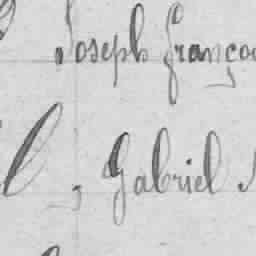 Joseph Françoi
l, Gabriel